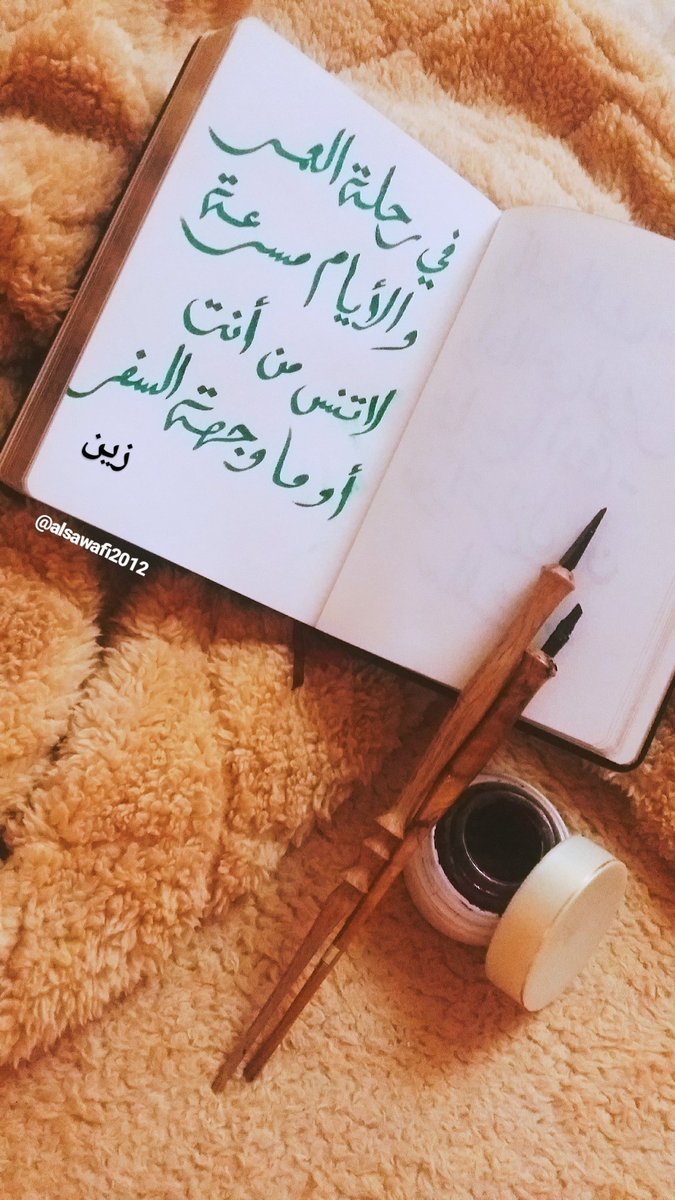 في رحلة العمر
والأيام مسرعة
لاتنس من أنت
أو ما وجهة السفر
زين
@alsawafi2012